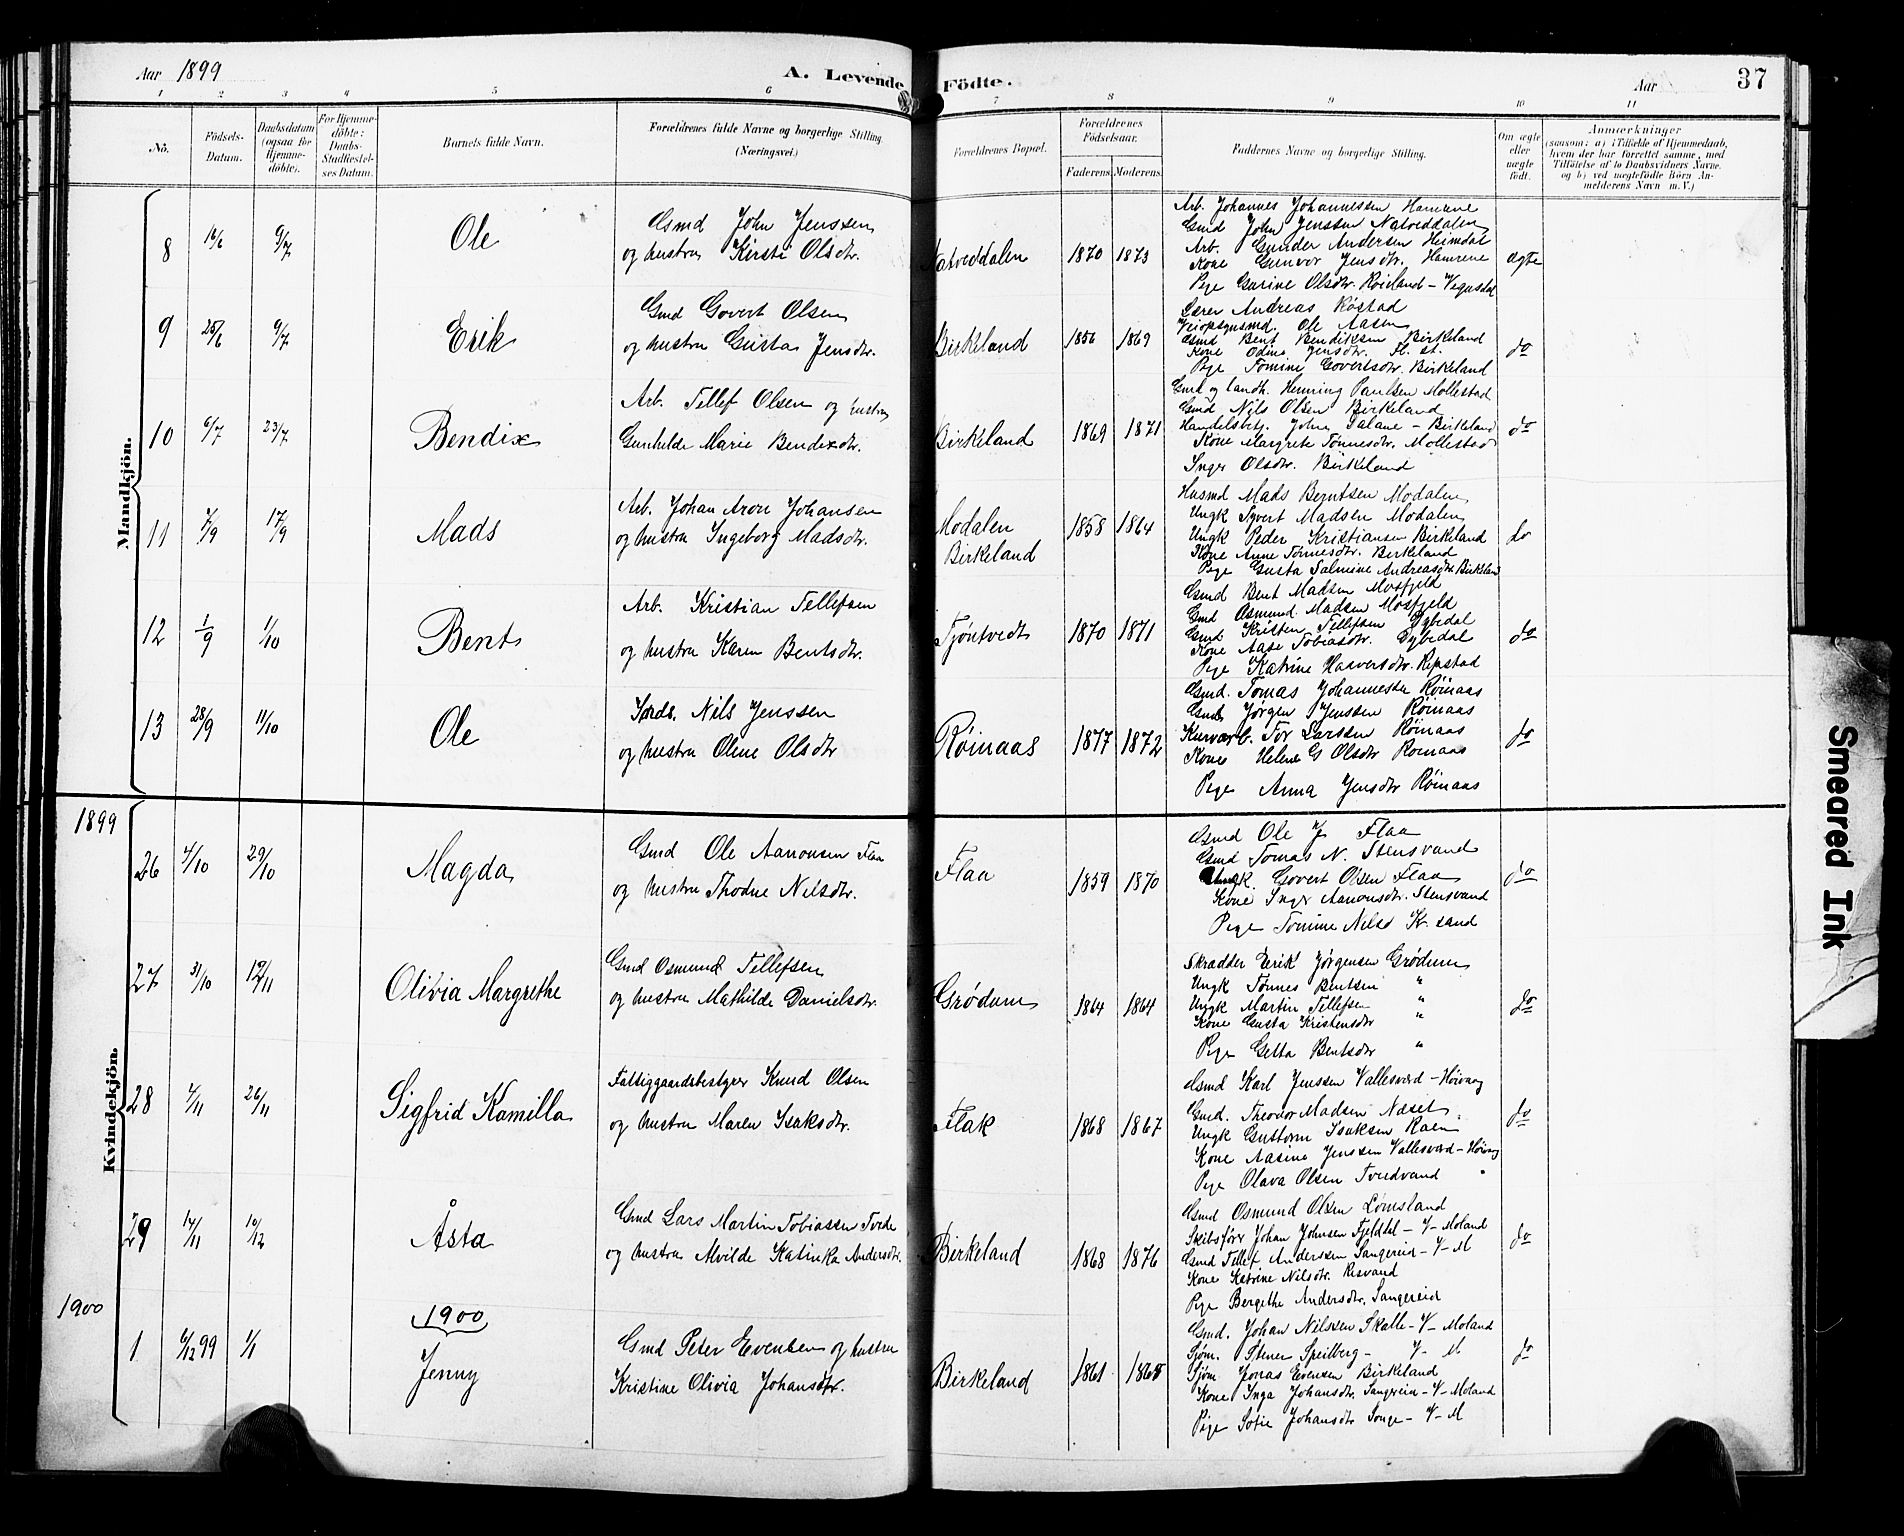 Aar 1899
A. Levende Födte.
Aar
37
1 2 3 4 5 6 7 8 9 10 11
No.
Födsels-Datum.
Daabsdatum (ogsaa for Hjemme-döbte).
For Hjemme-döbte: Daabs-Stadfæstel-ses Datum.
Barnets fulde Navn.
Forældrenes fulde Navne og borgerlige Stilling. (Næringsvei.)
Forældrenes Bopæl.
Forældrenes Födselsaar.
Faderens. Moderens.
Faddernes Navne og borgerlige Stilling.
Om ægte eller uægte født.
Anmærkninger
(saasom: a) i Tilfælde af Hjemmedaab,
hvem der har forrettet samme, med
Tilföielse af to Daabsvidners Navne,
og b) ved uægtefödte Börn An-
melderens Navn m. V.)
Mandkjön.
8 16/6 9/7 Ole
Gmd John Jenssen
og hustru Kirsti Olsdtr.
Natveddalen 1870 1873
Arb. Johannes Johannessen Hamrene
Gmd John Jenssen Natveddalen
Arb. Gunder Andersen Heimdal
Kone Gunvor Jensdtr. Hamrene
Pige Gurine Olsdtr. Røiland - Vegusdal
ægte
9 25/6 9/7 Erik
Gmd Govert Olsen
og hustru Gusta Jensdtr.
Birkeland 1856 1869
Lærer Andreas Røstad
Veiopsynsmd. Ole Aasen
Gmd Bent Bendiksen Birkeland
Kone Odine Jensdtr. Fl. st.
Pige Tomine Govertsdtr. Birkeland
do
10 6/7 23/7 Bendix
Arb. Tellef Olsen og hustru
Gunhilde Marie Bendexdtr.
Birkeland 1869 1871
Gmd og landh. Henning Paulsen Mollestad
Gmd Nils Olsen Birkeland
Handelsbetj. John Salane - Birkeland
Kone Margrete Tønnesdtr. Mollestad
Inger Olsdtr. Birkeland
do
11 4/9 17/9 Mads
Arb. Johan Aron Johansen
og hustru Ingeborg Madsdtr.
Modalen
Birkeland
1858 1864
Husmd Mads Berntsen Modalen
Ungk Syvert Madsen Modalen
Ungk Peder Kristiansen Birkeland
Kone Anne Tønnesdtr. Birkeland
Pige Gusta Salmine Andreasdtr Birkeland
do
12 1/9 1/10 Bent
Arb. Kristian Tellefsen
og hustru Karen Bentsdtr.
Tjøntvedt 1870 1871
Gmd Bent Madsen Mosfjeld
Gmd Osmund Madsen Mosfjeld
Gmd Kristen Tellefsen Dybedal
Kone Aase Tobiasdtr. Dybedal
Pige Katrine Haaversdtr. Repstad
do
13 28/9 11/10 Ole
Nils Jenssen
og hustru Oline Olsdtr
Røinaas 1877 1872
Gmd. Tomas Johannessen Røinaas
Gmd Jørgen Jenssen Røinaas
Kurvarb. Tor Larssen Røinaas
Kone Helene G Olsdtr Røinaas
Pige Anna Jensdtr Røinaas
do
1899
Kvindekjön.
26 4/10 29/10 Magda
Gmd Ole Aanonsen Flaa
og hustru Thodne Nilsdtr.
Flaa 1859 1870
Gmd Ole J. Flaa
Gmd Tomas N. Stensvand
Ungk. Govert Olsen Flaa
Kone Inger Aanonsdtr. Stensvand
Pige Tomine Nilsd Kr. sand
do
27 31/10 19/11 Olivia Margrethe
Gmd Osmund Tellefsen
og hustru Mathilde Danielsdtr.
Grødum 1864 1864
Skrædder Eerik Jørgensen Grødum
Ungk Tønnes Bentsen "
Ungk Martin Tellefsen "
Kone Gusta Kristensdtr "
Pige Getta Bentsdtr "
do
28 4/11 26/11 Sigfrid Kamilla
Fattiggaardsbestyrer Knud Olsen
og hustru Maren Isaksdtr.
Flak 1868 1867
Gmd Karl Jenssen Vallesværd - Høivaag
Gmd. Theodor Madsen Næset
Ungk Guttorm Isaksen Raen
Kone Aasine Jenssen Vallesværd - Høivaag
Pige Olava Olsen Tvedvand "
do
29 14/11 10/12 Åsta
Gmd Lars Martin Tobiassen Tvede
og hustru Alvilde Katinka Andersdtr.
Birkeland 1868 1876
Gmd Osmund Olsen Lømsland
Skibsfører Johan Johnsen Fjeldal - V - Moland
Gmd Tellef Anderssen Sangereid - V - M
Kone Katrine Nilsdtr. Risvand
Pige Bergithe Andersdtr. Sangereid
do
1900
1900
1 6/12 99 1/1 Jenny
Gmd Peter Evensen og hustru
Kristine Olivia Johansdtr.
Birkeland 1861 1865
Gmd. Johan Nilssen Skalle - V - Moland
Sjøm. Stener Speilberg - V - M
Sjøm Jonas Evensen Birkeland
Kone Inga Johansdtr. Sangereid - V - Moland
Pige Sofie Johansdtr Songe - V - M
do
Smeared Ink